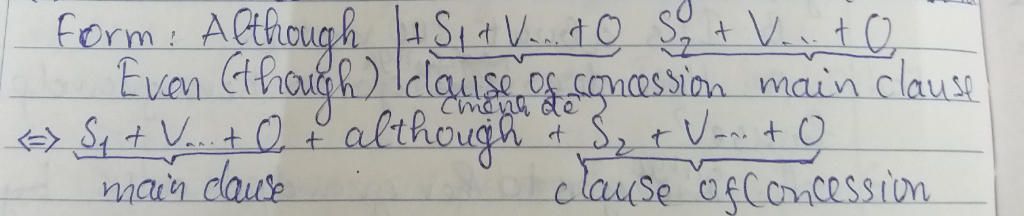 Form: Although + S1 + V... + O S2 + V... + O
Even (though) clause of concession main clause
(mệnh đề
⇔ S1 + V... + O + although + S2 + V... + O
main clause clause of Concession